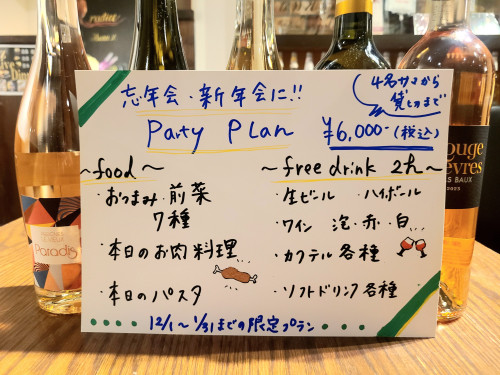 忘年会・新年会に!!
4名サマから
貸切まで
Party Plan
¥6,000-(税込)
~food~
・おつまみ・前菜
7種
・本日のお肉料理
・本日のパスタ
~free drink 2h~
・生ビール ・ハイボール
・ワイン 泡・赤・白
・カクテル各種
・ソフトドリンク各種
12/1~1/31までの限定プラン
Paradis
ouge
èvres
S BAUX